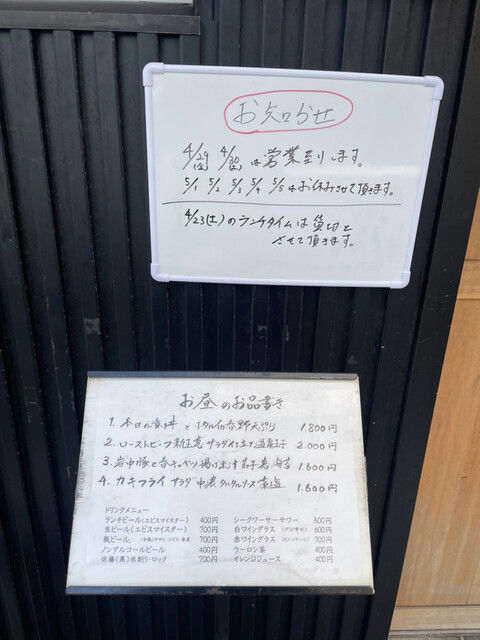 お知らせ
4/29(金) 4/30(土)は営業致します。
5/1 5/2 5/3 5/4 5/5はお休みさせて頂きます。
4/23(土)のランチタイムは貸切と
させて頂きます。
お昼のお品書き
1. 本日の漁師丼と 春野菜天ぷら 1.800円
2. ローストビーフ 新玉葱 サラダ仕立て 温泉玉子 2.000円
3. 岩中豚と春キャベツ 揚げ出汁茄子 葱 海苔 1.600円
4. カキフライ サラダ 中濃 タルタルソース 藻塩 1.600円
ドリンクメニュー
ランチビール(エビスマイスター) 400円
生ビール(エビスマイスター) 700円
瓶ビール 700円
ノンアルコールビール 400円
佐藤(黒)水割り・ロック 700円
シークワーサーサワー 600円
白ワイングラス 600円
赤ワイングラス 700円
ウーロン茶 400円
オレンジジュース 400円